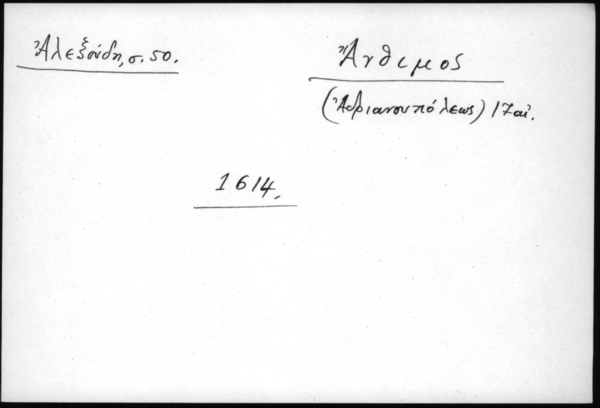 Ἀλεξούδη, σ. 50.
Ἄνθιμος
(Ἀδριανουπόλεως) 17αἰ.
1614.